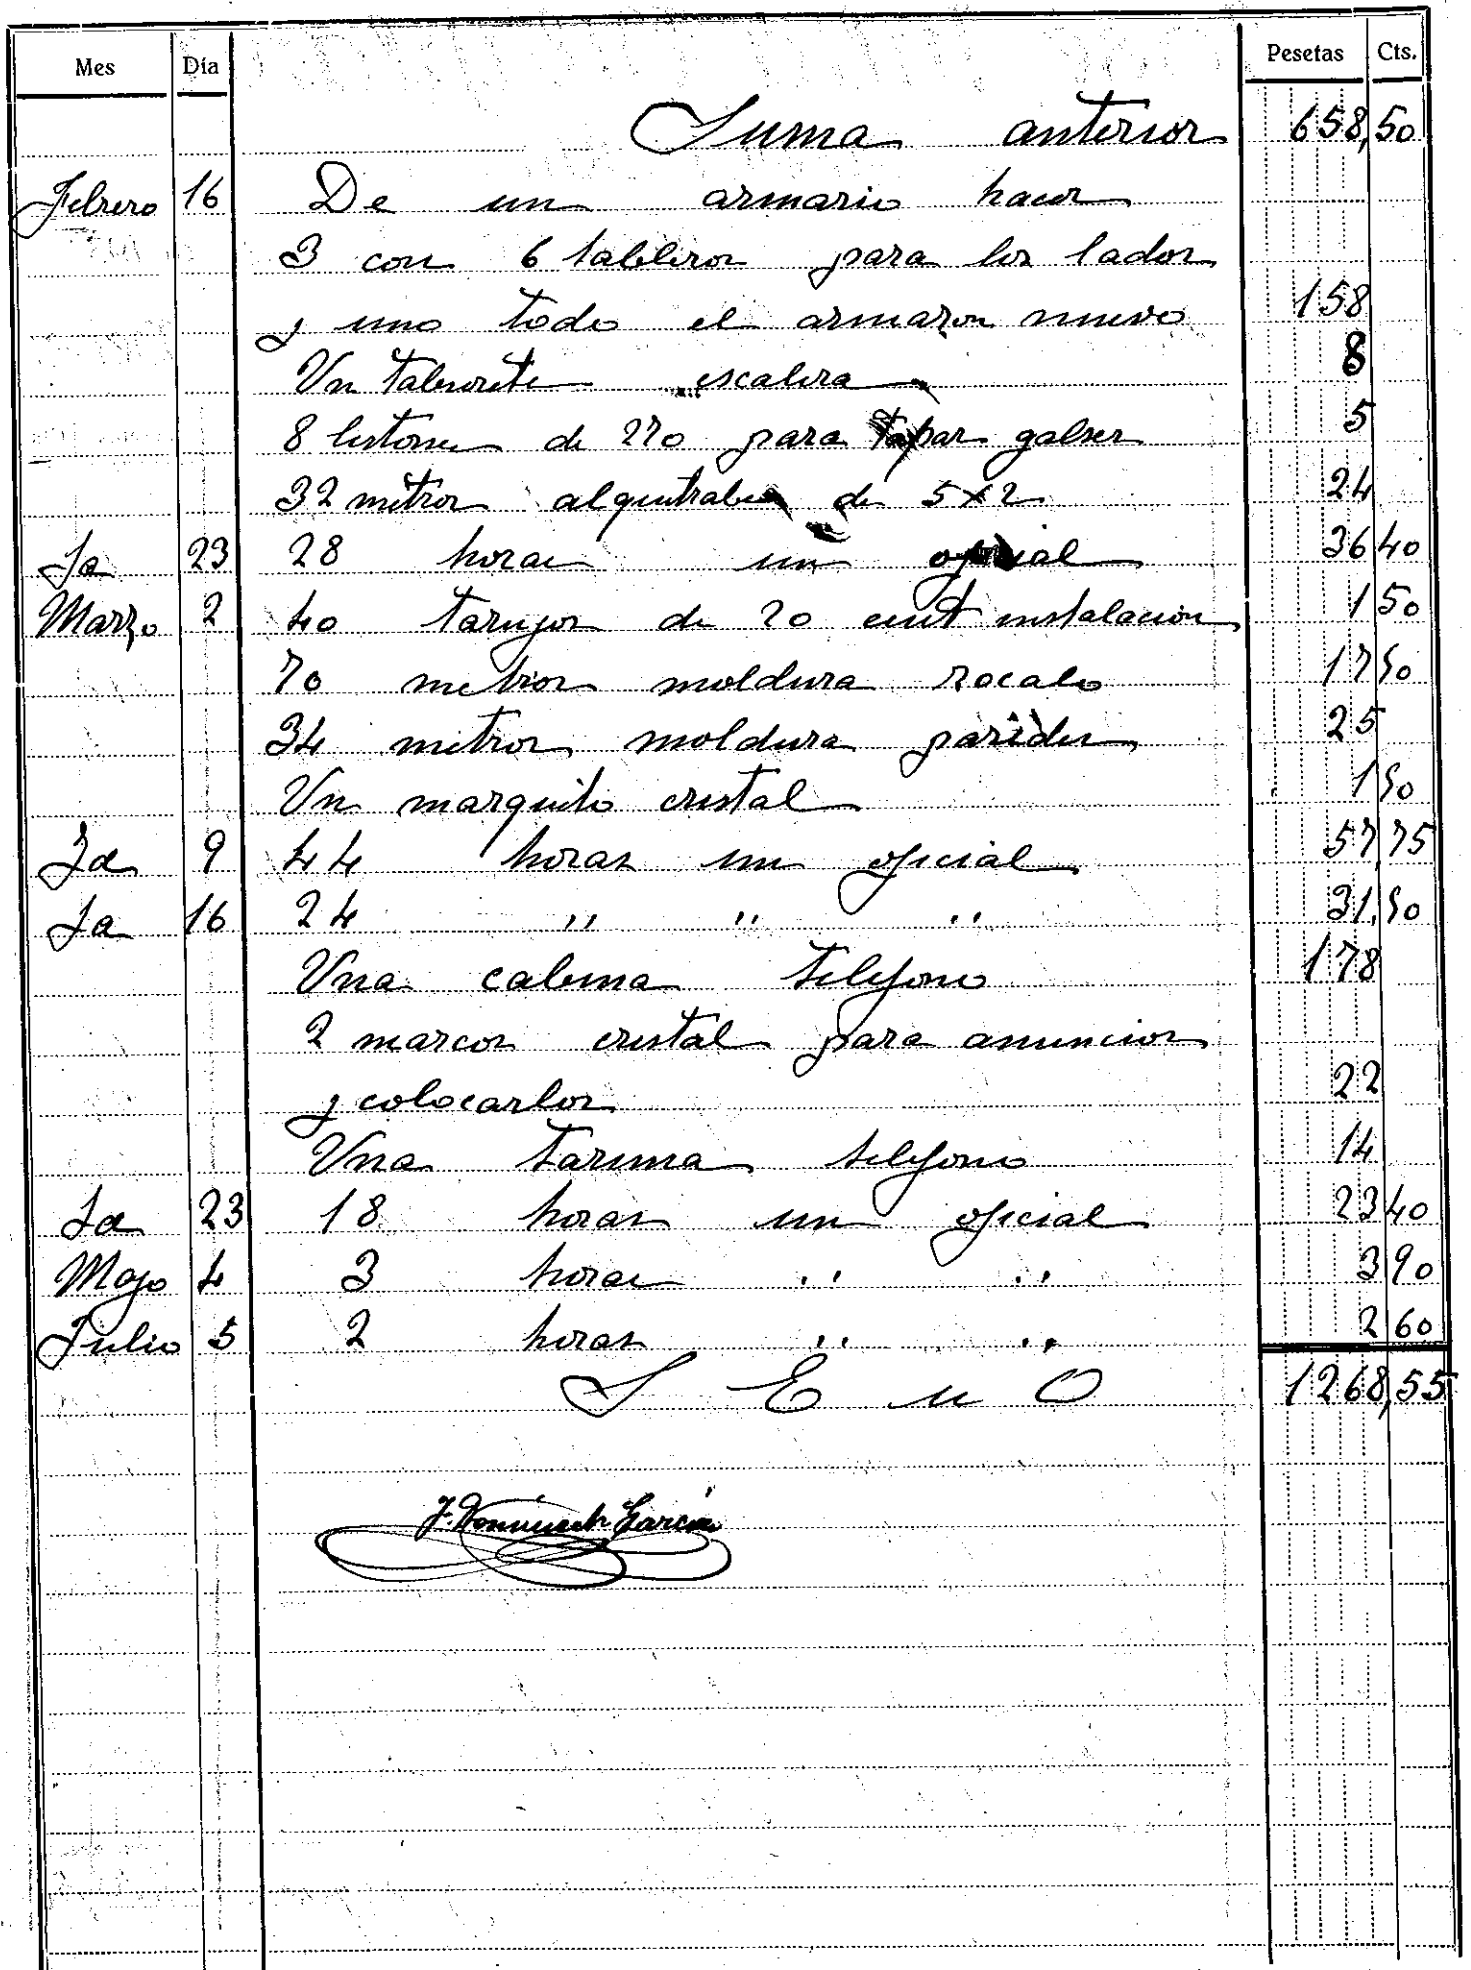 Mes Día Pesetas Cts.
Suma anterior 658,50
Febrero 16 De un armario hacer
3 con 6 tableros para los lados
y uno todo el armazon nuevo 158
Un taburete escalera 8
8 listones de 270 para tapar galses 5
32 metros alquitrabe de 5x2 24
Ia 23 28 horas un oficial 36 40
Marzo 2 40 tarujos de 20 cent instalacion 1 50
70 metros moldura zocalo 17 50
34 metros moldura paredes 25
Un marquito cristal 1 50
Ia 9 44 horas un oficial 57,75
Ia 16 24 " " " 31,50
Una cabina telefono 178
2 marcos cristal para anuncios
y colocarlos 22
Una tarima telefono 14
Ia 23 18 horas un oficial 23 40
Mayo 4 3 horas " " 3 90
Julio 5 2 horas " " 2 60
S E u O 1268,55
J. Domenech García